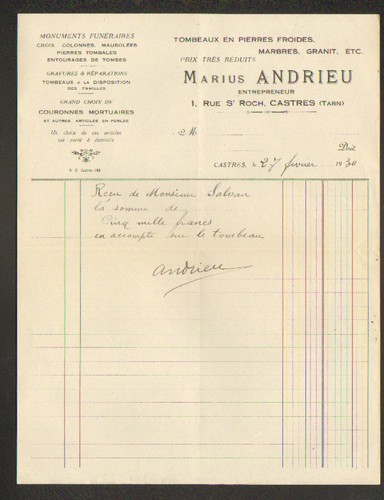 MONUMENTS FUNÉRAIRES
CROIX, COLONNES, MAUSOLÉES
PIERRES TOMBALES
ENTOURAGES DE TOMBES
GRAVURES & RÉPARATIONS
TOMBEAUX A LA DISPOSITION
DES FAMILLES
GRAND CHOIX DE
COURONNES MORTUAIRES
ET AUTRES ARTICLES EN PERLES
Un choix de ces articles
est porté à domicile
TOMBEAUX EN PIERRES FROIDES,
MARBRES, GRANIT, ETC.
PRIX TRÈS RÉDUITS
MARIUS ANDRIEU
ENTREPRENEUR
1, RUE St ROCH, CASTRES (TARN)
M
Doit
CASTRES, le 27 février 1930
Recu de Monsieur Salvan
la somme de
Cinq mille francs
en accompte sur le tombeau
Andrieu